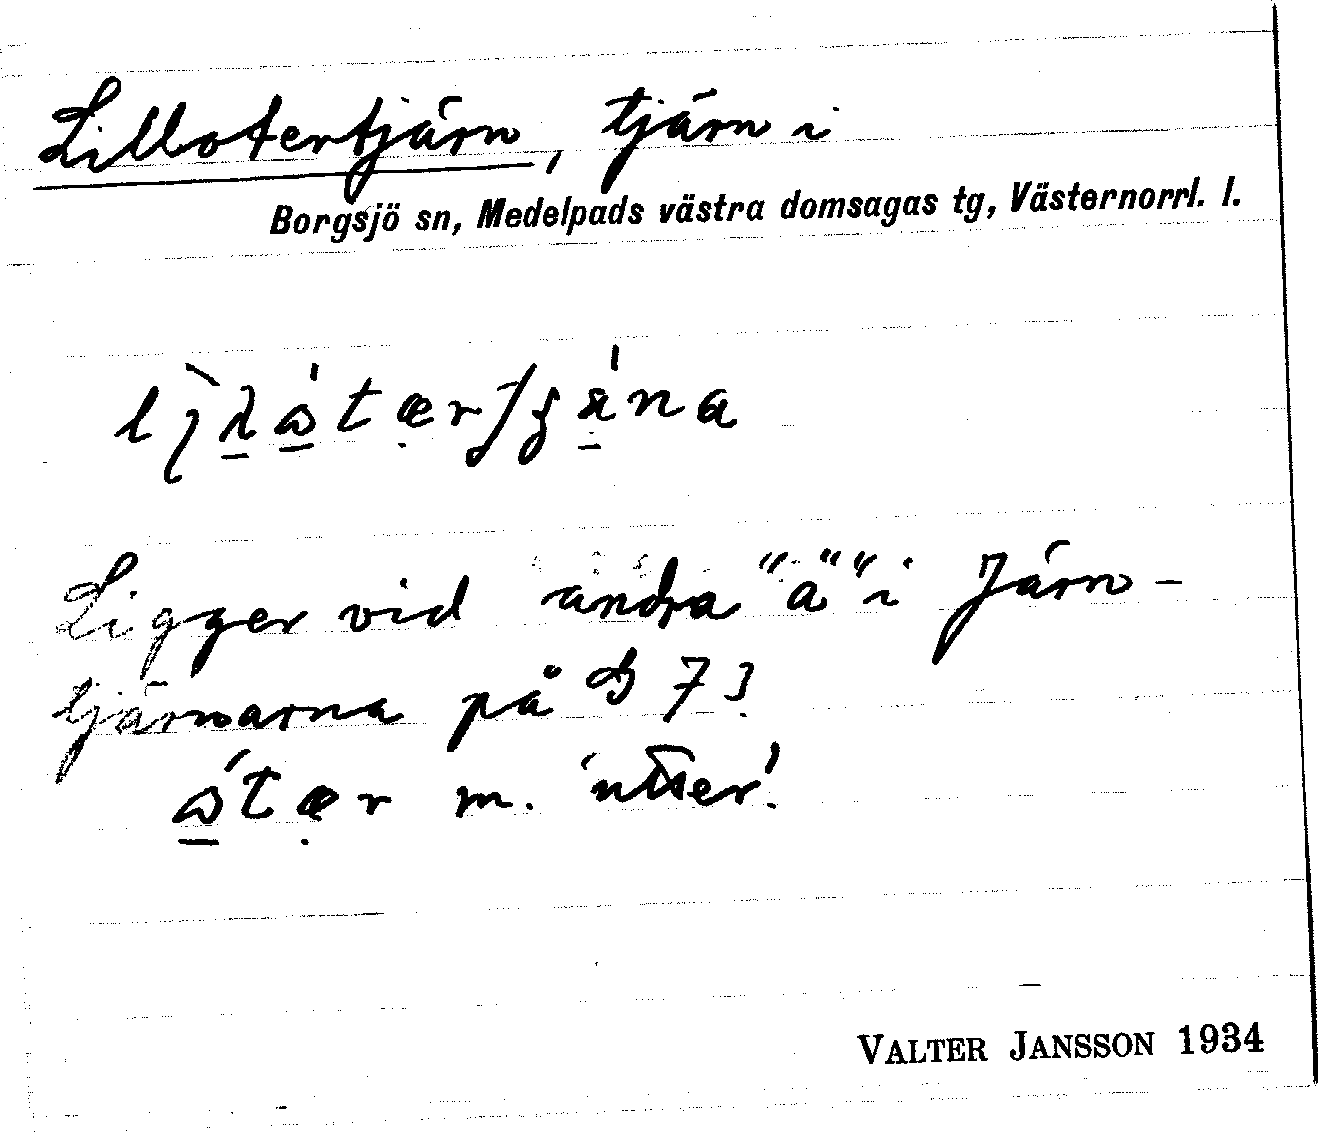 Lillotertjärn, tjärn i
Borgsjö sn, Medelpads västra domsagas tg, Västernorrl. l.
Ligger vid andra "ä" i Järn-
tjärnarna på
m. 'utter'.
VALTER JANSSON 1934